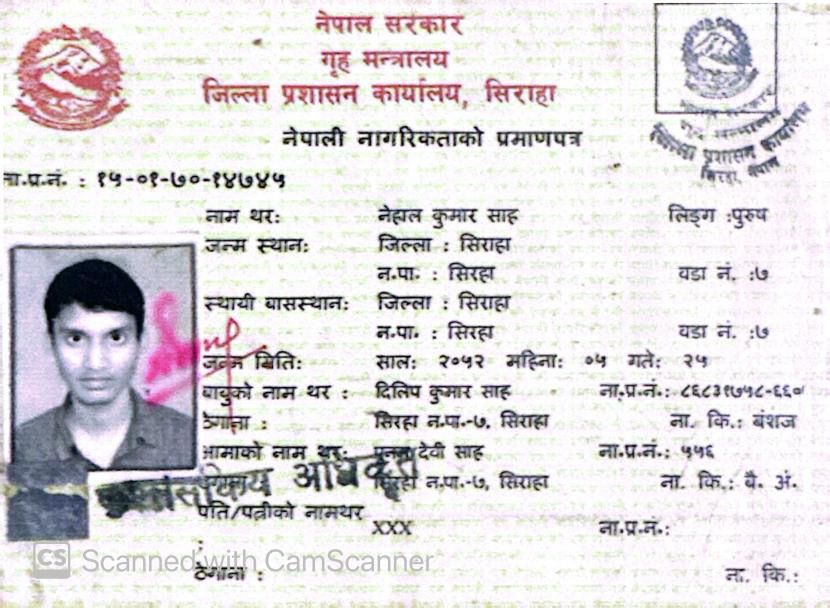 नेपाल सरकार
गृह मन्त्रालय
जिल्ला प्रशासन कार्यालय, सिराहा
नेपाली नागरिकताको प्रमाणपत्र
जिल्ला प्रशासन कार्यालय
सिरहा, नेपाल
ना.प्र.नं. : १५-०१-७०-१४७४५
नाम थर: नेहाल कुमार साह लिङ्ग :पुरुष
जन्म स्थान: जिल्ला : सिराहा
न.पा. : सिरहा वडा नं. :७
स्थायी बासस्थान: जिल्ला : सिराहा
न.पा. : सिरहा वडा नं. :७
जन्म मिति: साल: २०५२ महिना: ०५ गते: २५
बाबुको नाम थर : दिलिप कुमार साह ना.प्र.नं.: ८६८३१७५८-६६०
ठेगाना : सिरहा न.पा.-७, सिराहा ना. कि.: बंशज
आमाको नाम थर: देवी साह ना.प्र.नं.: ५५६
सिरहा न.पा.-७, सिराहा ना. कि.: वै. अं.
अधिकृत
पति/पत्नीको नामथर : XXX ना.प्र.नं.:
ठेगाना : ना. कि.:
CS Scanned with CamScanner